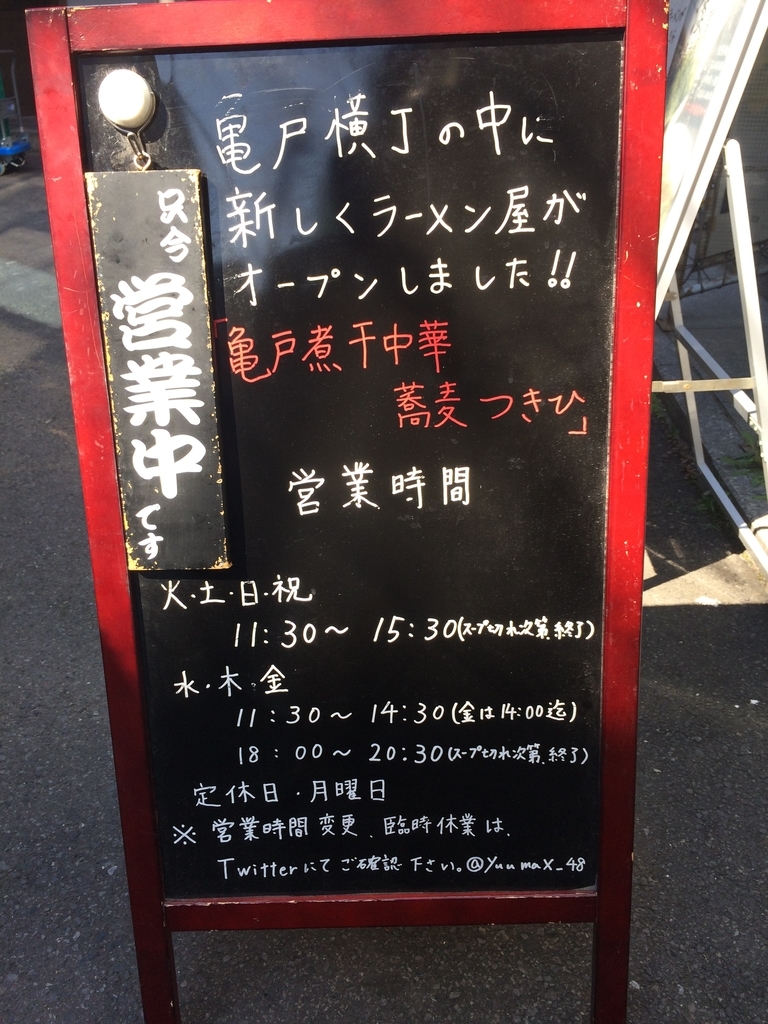 亀戸横丁の中に
新しくラーメン屋が
オープンしました!!
「亀戸煮干中華
蕎麦つきひ」
只今営業中です
営業時間
火・土・日・祝
11:30〜15:30(スープ切れ次第終了)
水・木・金
11:30〜14:30(金は14:00迄)
18:00〜20:30(スープ切れ次第終了)
定休日・月曜日
※営業時間変更、臨時休業は、
Twitterにてご確認下さい。@yuumax_48